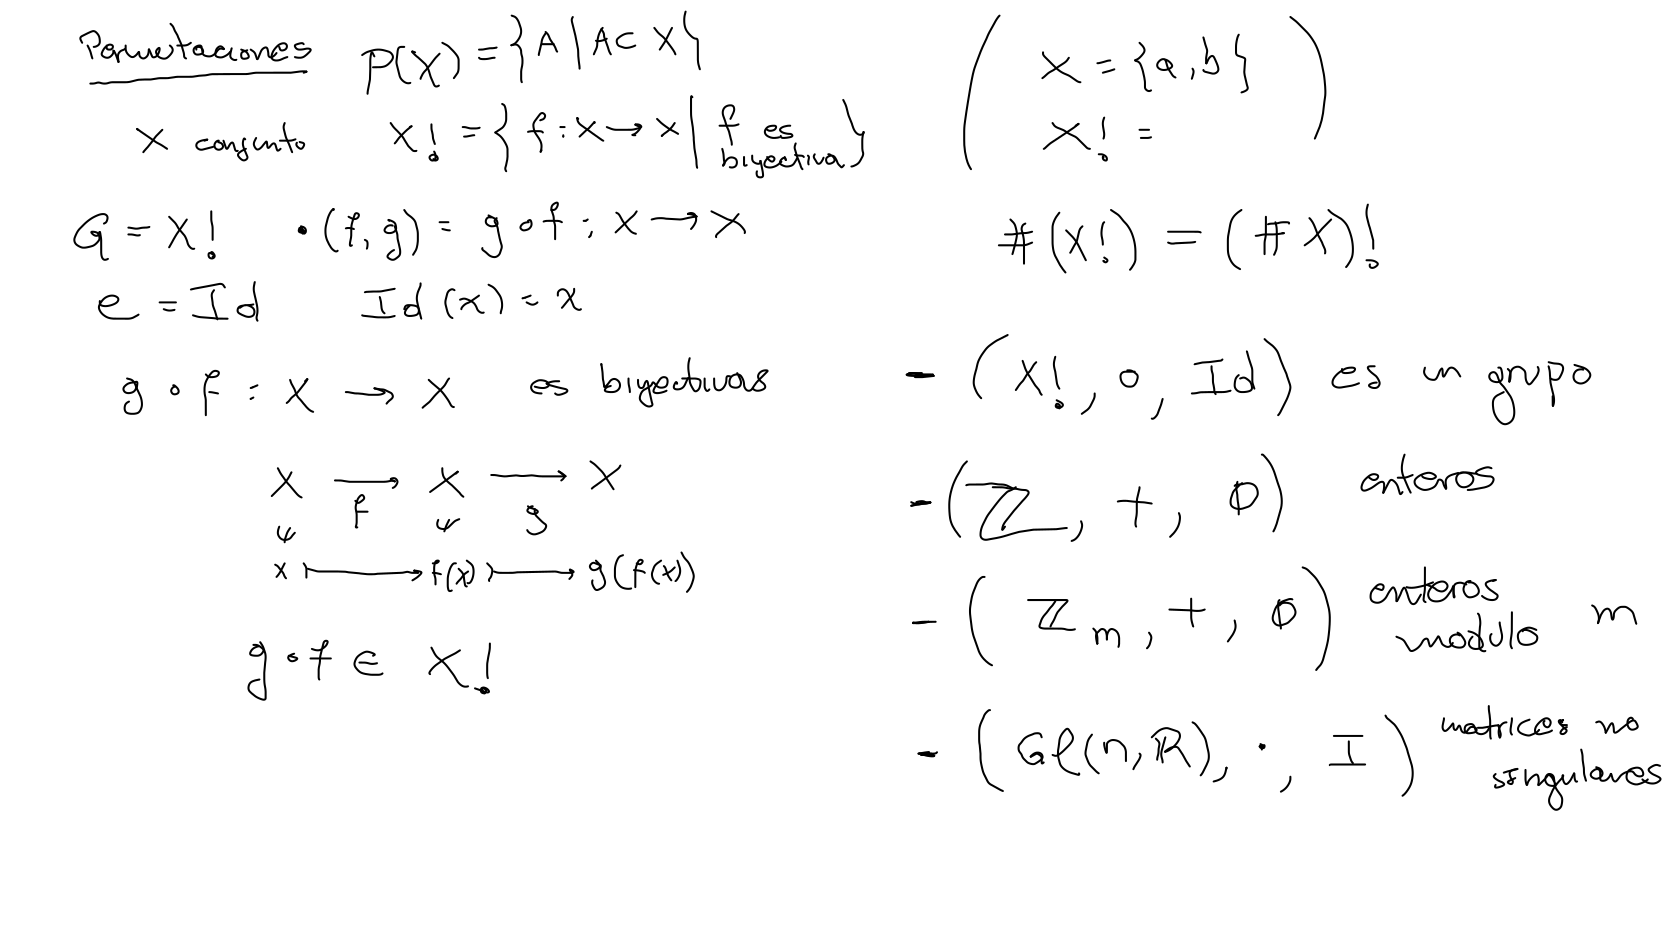 Permutaciones P(X) = {A | A ⊂ X}
X conjunto X! = { f : X → X | f es biyectiva }
G = X! · (f, g) = g ∘ f : X → X
e = Id Id(x) = x
g ∘ f : X → X es biyectivas
X →f X →g X
x ↦ f(x) ↦ g(f(x))
g ∘ f ∈ X!
( X = {a, b}
X! = )
#(X!) = (#X)!
- (X!, ∘, Id) es un grupo
- (ℤ, +, 0) enteros
- (ℤ_m, +, 0) enteros modulo m
- (Gℓ(n, ℝ), ·, I) matrices no singulares